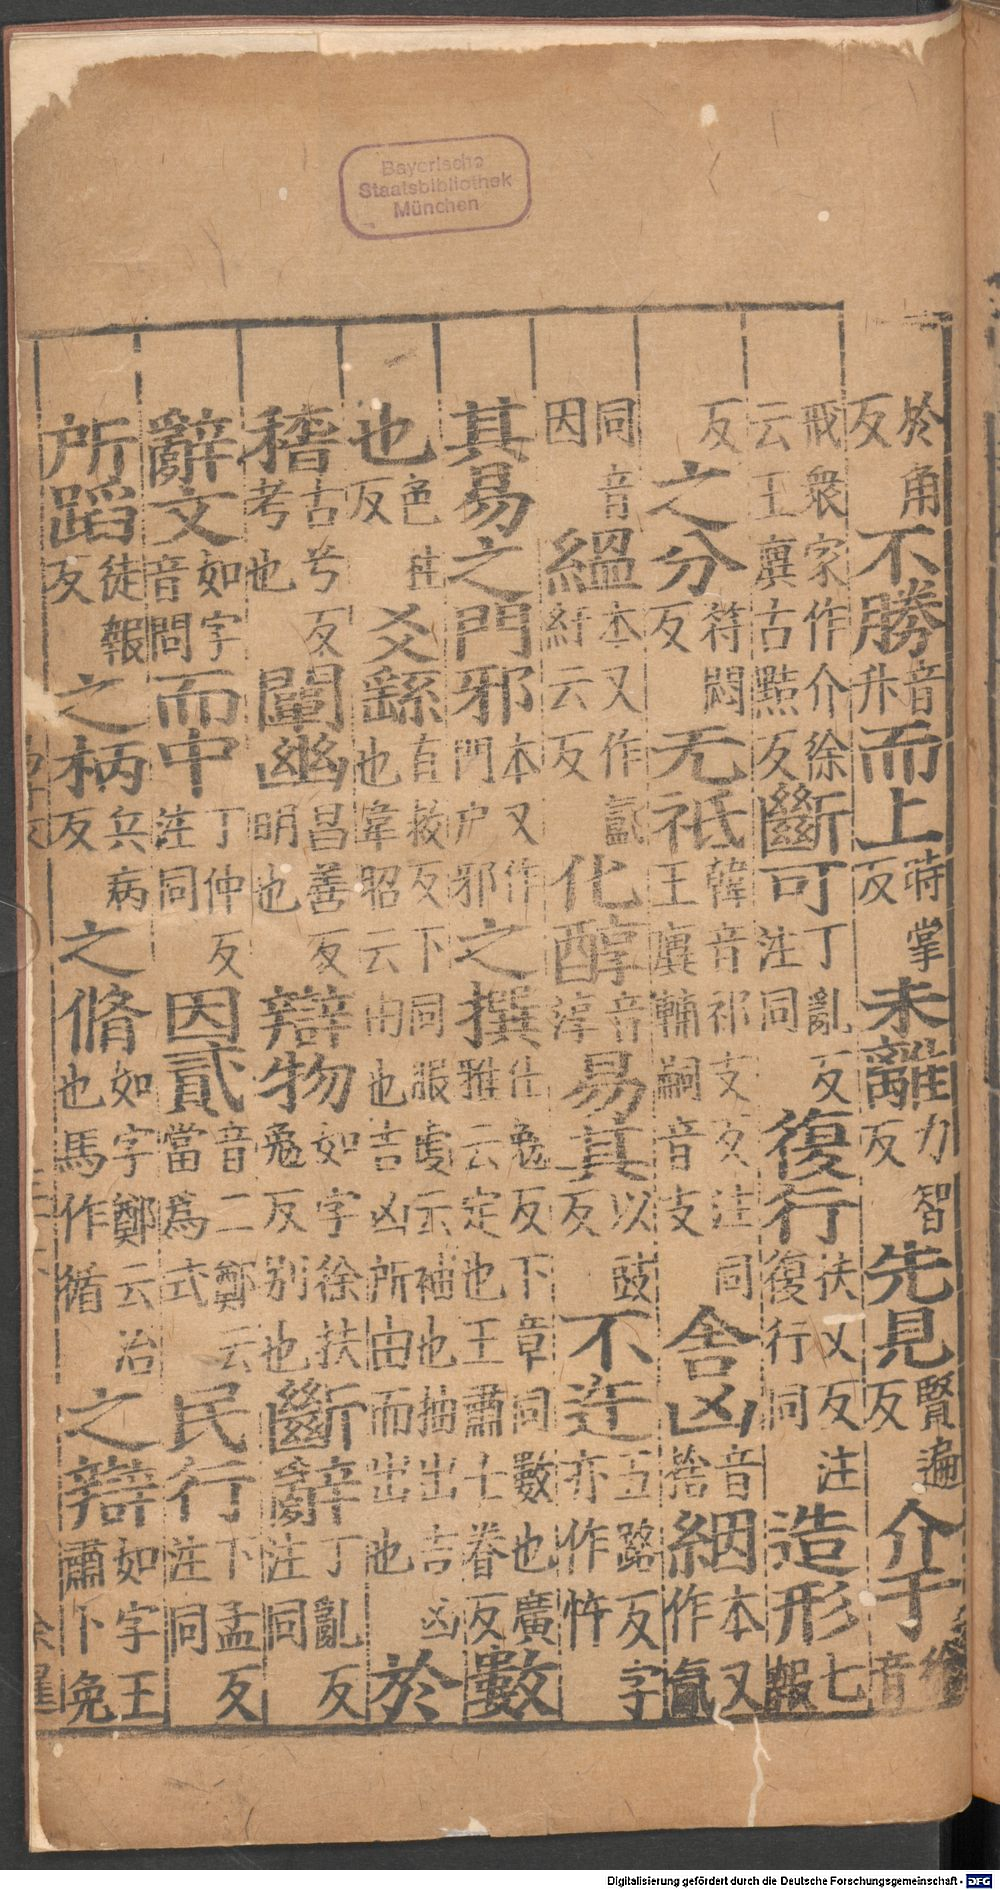 於角反不勝音升而上時掌反未離力智反先見賢遍反介于徐音
戒衆家作介徐云王廙古黠反斷可丁亂反注同復行扶又反注復行同造形七報
反之分符悶反无祗韓音祁支反注同王廙輔嗣音支舍凶音捨絪本又作氤
同音因縕本又作氳紆云反化醇音淳易其以豉反不迕五路反字亦作忤
其易之門邪本又作門户邪之撰仕勉反下章同數也廣雅云定也王肅士眷反數
也色柱反爻繇直救反下同服虔云袖也抽出吉凶也韋昭云由也吉凶所由而出也於
稽古兮反考也闡幽昌善反明也辯物如字徐扶勉反别也斷辭丁亂反注同
辭文如字音問而中丁仲反注同因貳音二鄭云當爲式民行下孟反注同
所蹈徒報反之柄兵病反之脩如字鄭云治也馬作循之辯如字王肅卜免
Bayerische
Staatsbibliothek
München
Digitalisierung gefördert durch die Deutsche Forschungsgemeinschaft - DFG